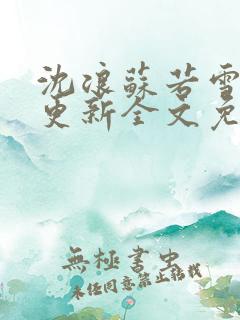 沈浪蘇若雪
更新全文免
無極書虫
未经同意禁止转载